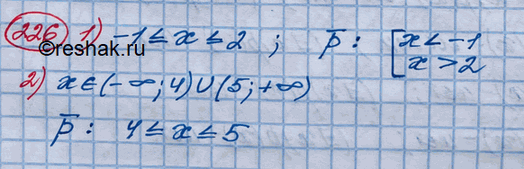 226 1) -1 ≤ x ≤ 2 ; p̅ : [ x < -1
x > 2
©reshak.ru
2) x ∈ (-∞; 4) ∪ (5; +∞)
p̅ : 4 ≤ x ≤ 5